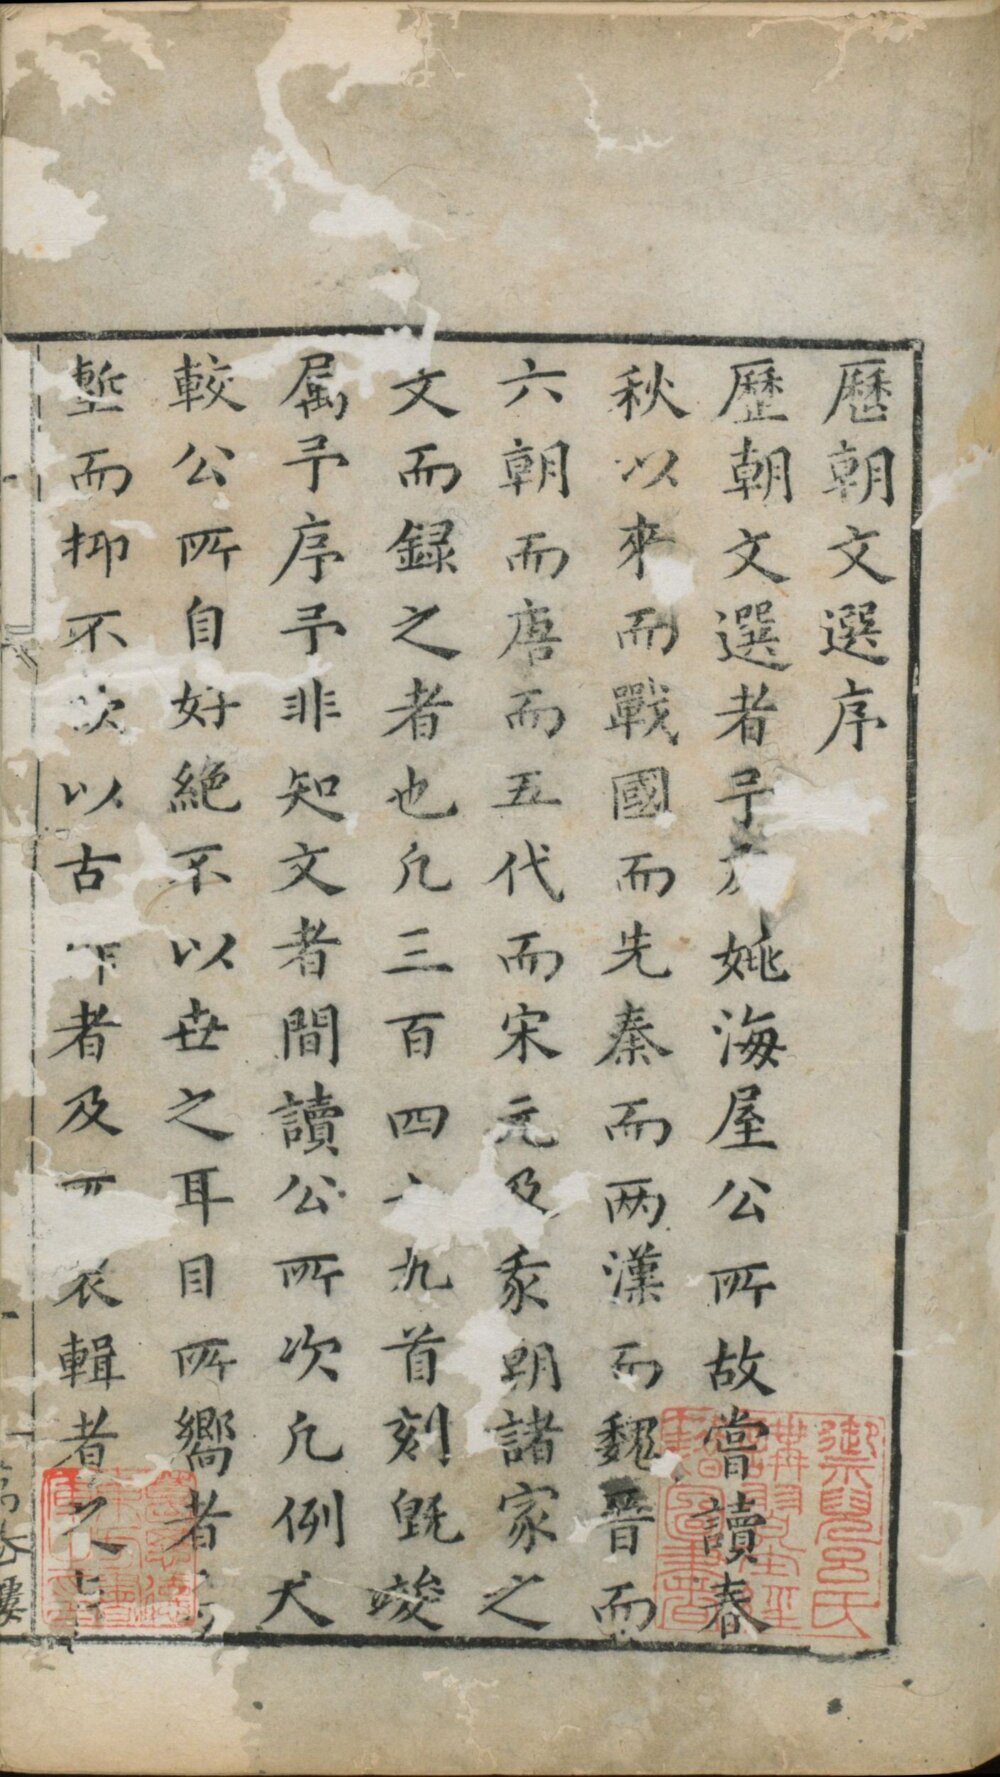 歷朝文選序
歷朝文選者予姚海屋公所故嘗讀春
秋以來而戰國而先秦而兩漢而魏晉而
六朝而唐而五代而宋元及彖朝諸家之
文而録之者也凡三百四九首刻既竣
属予序予非知文者間讀公所次凡例大
較公所自好絶不以世之耳目所嚮者
蹔而抑不次以古下者及衣輯者
御兒呂氏